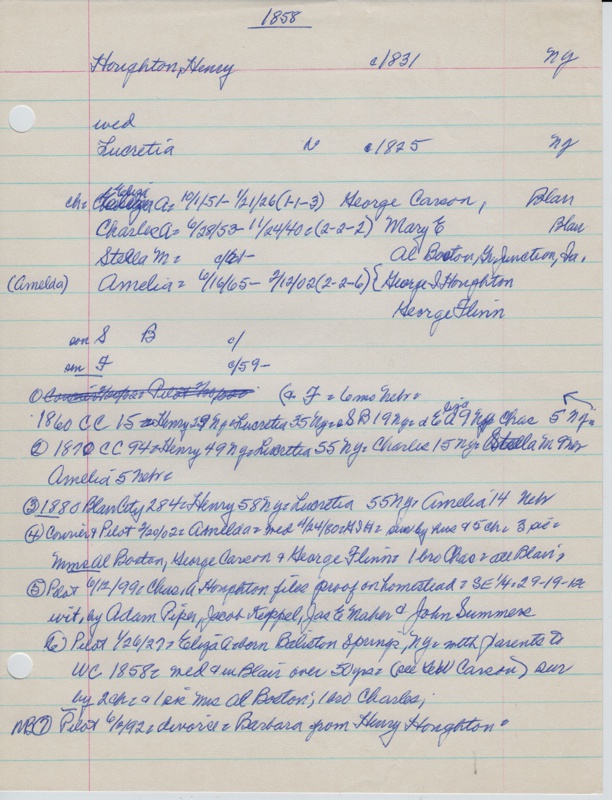 1858
Houghton, Henry c/1831 Ny
wed
Lucretia N c/1825 Ny
ch= Eliza A= 10/1/51- 1/21/26 (1-1-3) George Carson, Blair
Charles A= 6/28/53- 11/24/40= (2-2-2) Mary E Blair
Stella M= c/61- Al Boston, Gr Junction, Ia.
(Amelda) Amelia= 6/16/65- 2/12/02 (2-2-6) { George I Houghton
George Flinn
son S B c/
son F c/59-
① (& F= 6 mo Nebr=
1860 CC 15= Henry 29 Ny= Lucretia 35 Ny= S B 19 Ny= & Eliza A 9 Ny Chas 5 Ny=
② 1870 CC 94= Henry 49 Ny= Lucretia 55 Ny= Charles 15 Ny= Stella M 9 Ny
Amelia 5 Nebr=
③ 1880 Blair City 284= Henry 58 Ny= Lucretia 55 Ny= Amelia 14 Nebr
④ Courier & Pilot 2/20/02= Amelda= wed 4/24/80= = sur by hus & 5 ch= 3 sis=
Mmes Al Boston, George Carson & George Flinn= 1 bro Chas= all Blair,
⑤ Pilot 6/12/99= Chas. A Houghton files proof on homestead= SE¼= 29-19-12
wit. by Adam Piper, Jacob Keppel, Jas E Maher & John Summers
⑥ Pilot 1/26/27= Eliza A born Balston Springs, Ny= with parents to
WC 1858= wed & in Blair over 50 yrs= (see Carson) sur
by 2 ch= & 1 sis Mrs Al Boston; 1 bro Charles;
NB ⑦ Pilot 6/2/92= divorce= Barbara from Henry Houghton=